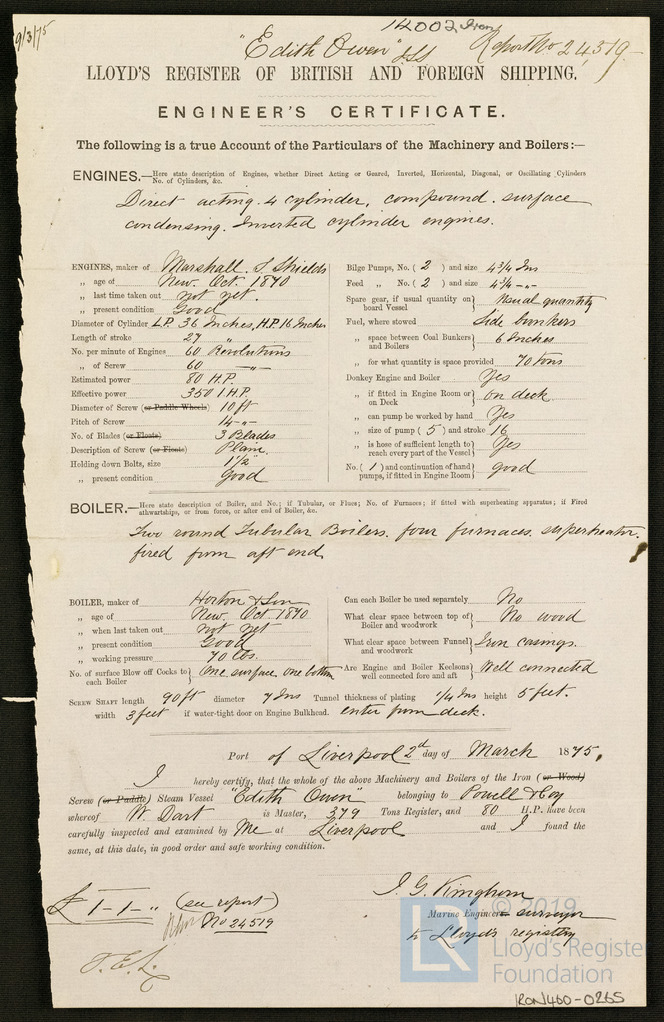 9/3/75
14002 Iron
"Edith Owen" SSS Report No 24519
LLOYD'S REGISTER OF BRITISH AND FOREIGN SHIPPING.
ENGINEER'S CERTIFICATE.
The following is a true Account of the Particulars of the Machinery and Boilers:—
ENGINES.—Here state description of Engines, whether Direct Acting or Geared, Inverted, Horizontal, Diagonal, or Oscillating Cylinders
No. of Cylinders, &c.
Direct acting. 4 cylinder, compound. surface
condensing. Inverted cylinder engines.
ENGINES, maker of Marshall. S. Shields
„ age of New. Oct. 1870
„ last time taken out not yet.
„ present condition Good
Diameter of Cylinder L.P. 36 Inches, H.P. 16 Inches
Length of stroke 27 „
No. per minute of Engines 60 Revolutions
„ of Screw 60 —„—
Estimated power 80 H.P.
Effective power 350 I.H.P.
Diameter of Screw (or Paddle Wheels) 10 ft
Pitch of Screw 14 -„-
No. of Blades (or Floats) 3 Blades
Description of Screw (or Floats) Plain.
Holding down Bolts, size 1½"
„ present condition Good
Bilge Pumps, No. ( 2 ) and size 4¾ Ins
Feed „ No. ( 2 ) and size 4¾ -„-
Spare gear, if usual quantity on board Vessel } Usual quantity
Fuel, where stowed Side bunkers
„ space between Coal Bunkers and Boilers } 6 Inches
„ for what quantity is space provided 70 tons
Donkey Engine and Boiler Yes
„ if fitted in Engine Room or on Deck } on deck
„ can pump be worked by hand Yes
„ size of pump ( 5 ) and stroke 16
„ is hose of sufficient length to reach every part of the Vessel } Yes
No. ( 1 ) and continuation of hand pumps, if fitted in Engine Room } good
BOILER.—Here state description of Boiler, and No.; if Tubular, or Flues; No. of Furnaces; if fitted with superheating apparatus; if Fired
athwartships, or from fore, or after end of Boiler, &c.
Two round Tubular Boilers. four furnaces. superheater.
fired from aft end
BOILER, maker of Horton & Son
„ age of New. Oct. 1870
„ when last taken out not yet
„ present condition Good
„ working pressure 70 lbs.
No. of surface Blow off Cocks to each Boiler } One surface one bottom
Can each Boiler be used separately No
What clear space between top of Boiler and woodwork } No wood
What clear space between Funnel and woodwork } Iron casings.
Are Engine and Boiler Keelsons well connected fore and aft } Well connected
SCREW SHAFT length 90 ft diameter 7 Ins Tunnel thickness of plating ¼ Ins height 5 feet.
width 3 feet if water-tight door on Engine Bulkhead. enter from deck.
Port of Liverpool 2nd day of March 1875.
I hereby certify, that the whole of the above Machinery and Boilers of the Iron (or Wood)
Screw (or Paddle) Steam Vessel "Edith Owen" belonging to Powell & Coy
whereof W. Dart is Master, 379 Tons Register, and 80 H.P. have been
carefully inspected and examined by Me at Liverpool and I found the
same, at this date, in good order and safe working condition.
£ 1-1-" (see report)
No 24519
J. G. Kinghorn
Marine Engineer surveyor
to Lloyd's registry
T.E.L.
© 2019
LR
Lloyd's Register
Foundation
IRON400-0265